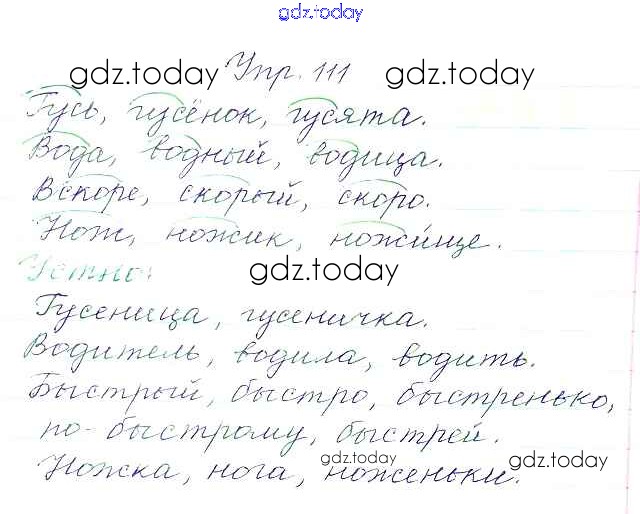 gdz.today
gdz.today Упр. 111 gdz.today
Гусь, гусёнок, гусята.
Вода, водный, водица.
Вскоре, скорый, скоро.
Нож, ножик, ножище.
Устно: gdz.today
Гусеница, гусеничка.
Водитель, водила, водить.
Быстрый, быстро, быстренько,
по-быстрому, быстрей.
gdz.today gdz.today
Ножка, нога, ноженьки.